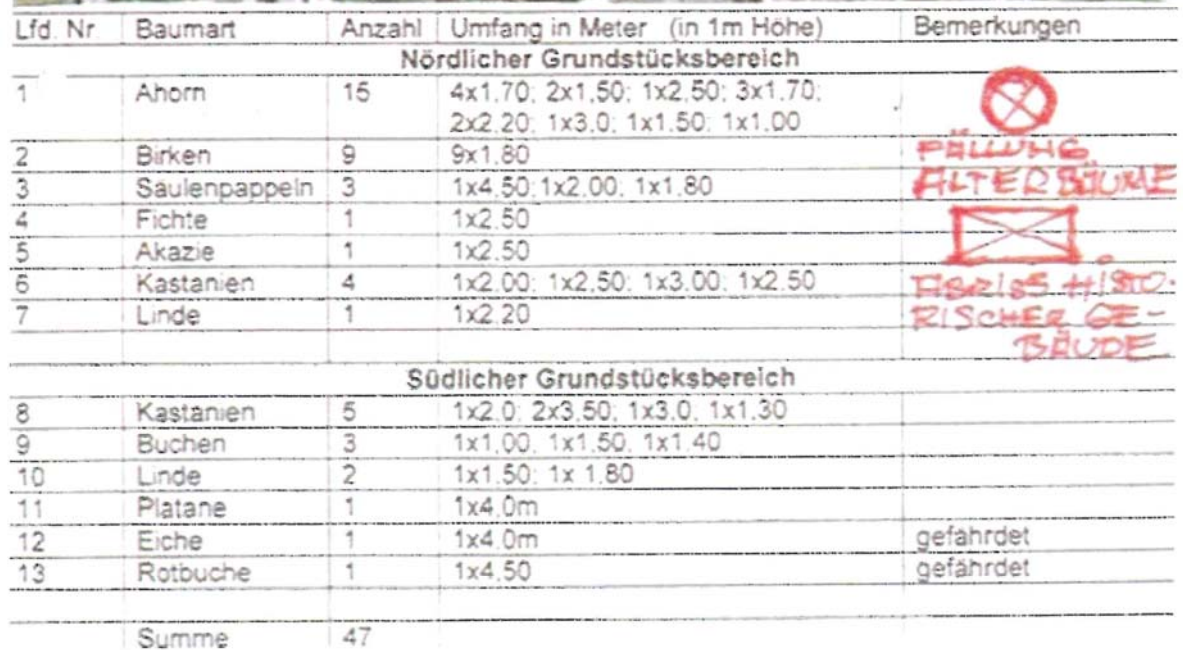 Lfd. Nr. Baumart Anzahl Umfang in Meter (in 1m Höhe) Bemerkungen
Nördlicher Grundstücksbereich
1 Ahorn 15 4x1,70; 2x1,50; 1x2,50; 3x1,70;
2x2,20; 1x3,0; 1x1,50; 1x1,00
2 Birken 9 9x1,80
3 Säulenpappeln 3 1x4,50; 1x2,00; 1x1,80
4 Fichte 1 1x2,50
5 Akazie 1 1x2,50
6 Kastanien 4 1x2,00; 1x2,50; 1x3,00; 1x2,50
7 Linde 1 1x2,20
FÄLLUNG
ALTER BÄUME
ABRISS HISTO-
RISCHER GE-
BÄUDE
Südlicher Grundstücksbereich
8 Kastanien 5 1x2,0; 2x3,50; 1x3,0, 1x1,30
9 Buchen 3 1x1,00, 1x1,50, 1x1,40
10 Linde 2 1x1,50; 1x 1,80
11 Platane 1 1x4,0m
12 Eiche 1 1x4,0m gefährdet
13 Rotbuche 1 1x4,50 gefährdet
Summe 47